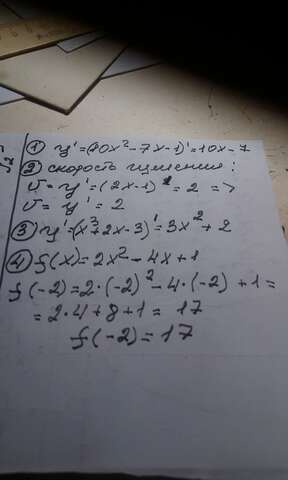 ① y' = (10x² - 7x - 1)' = 10x - 7
② скорость :
v = y' = (2x - 1)' = 2 =>
v = y' = 2
③ y' = (x³ + 2x - 3)' = 3x² + 2
④ f(x) = 2x² - 4x + 1
f(-2) = 2·(-2)² - 4·(-2) + 1 =
= 2·4 + 8 + 1 = 17
f(-2) = 17